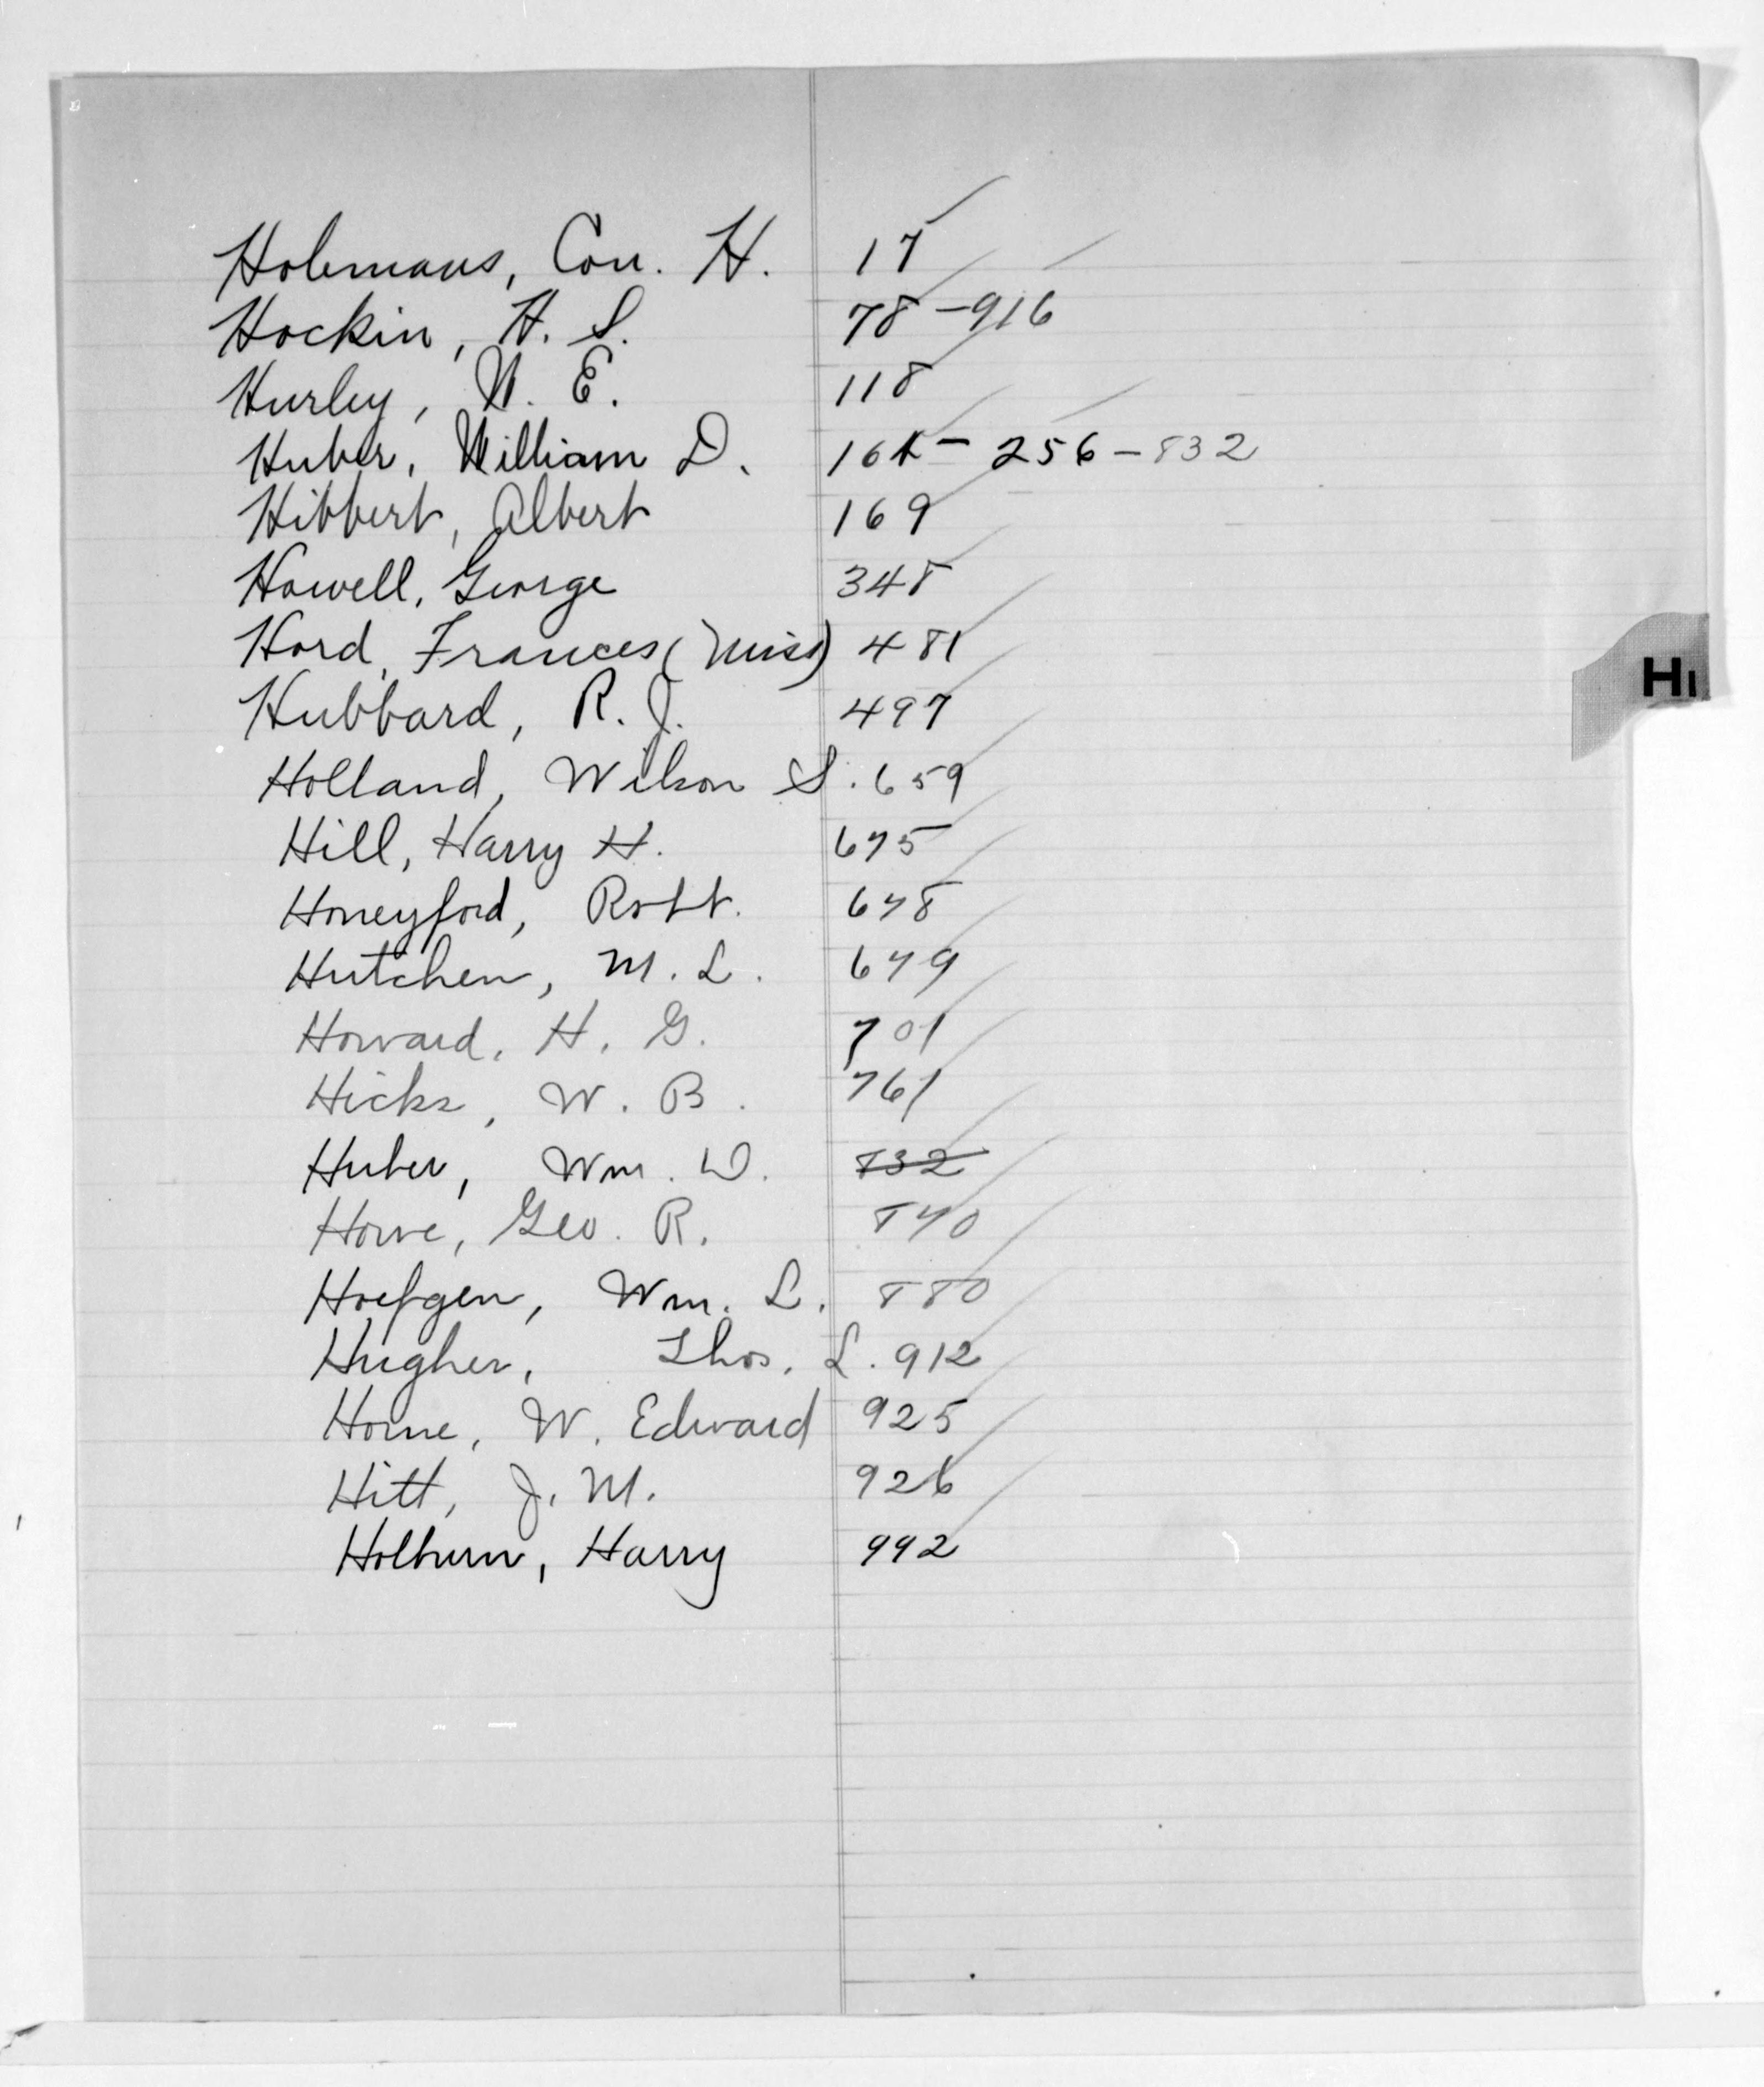 Holemans, Con. H. 17
Hockin, H. S. 78 - 916
Hurley, W. E. 118
Huber, William D. 164 - 256 - 832
Hibbert, Albert 169
Howell, George 348
Hord, Frances (Miss) 481
Hubbard, R. J. 497
Holland, Wilson S. 659
Hill, Harry H. 675
Honeyford, Robt. 678
Hutchen, M. L. 679
Howard, H. G. 701
Hicks, W. B. 761
Huber, Wm. D. 832
Howe, Geo. R. 870
Hoefgen, Wm. L. 880
Hughes, Thos. L. 912
Horne, W. Edward 925
Hitt, J. M. 926
Holburn, Harry 992
Hi